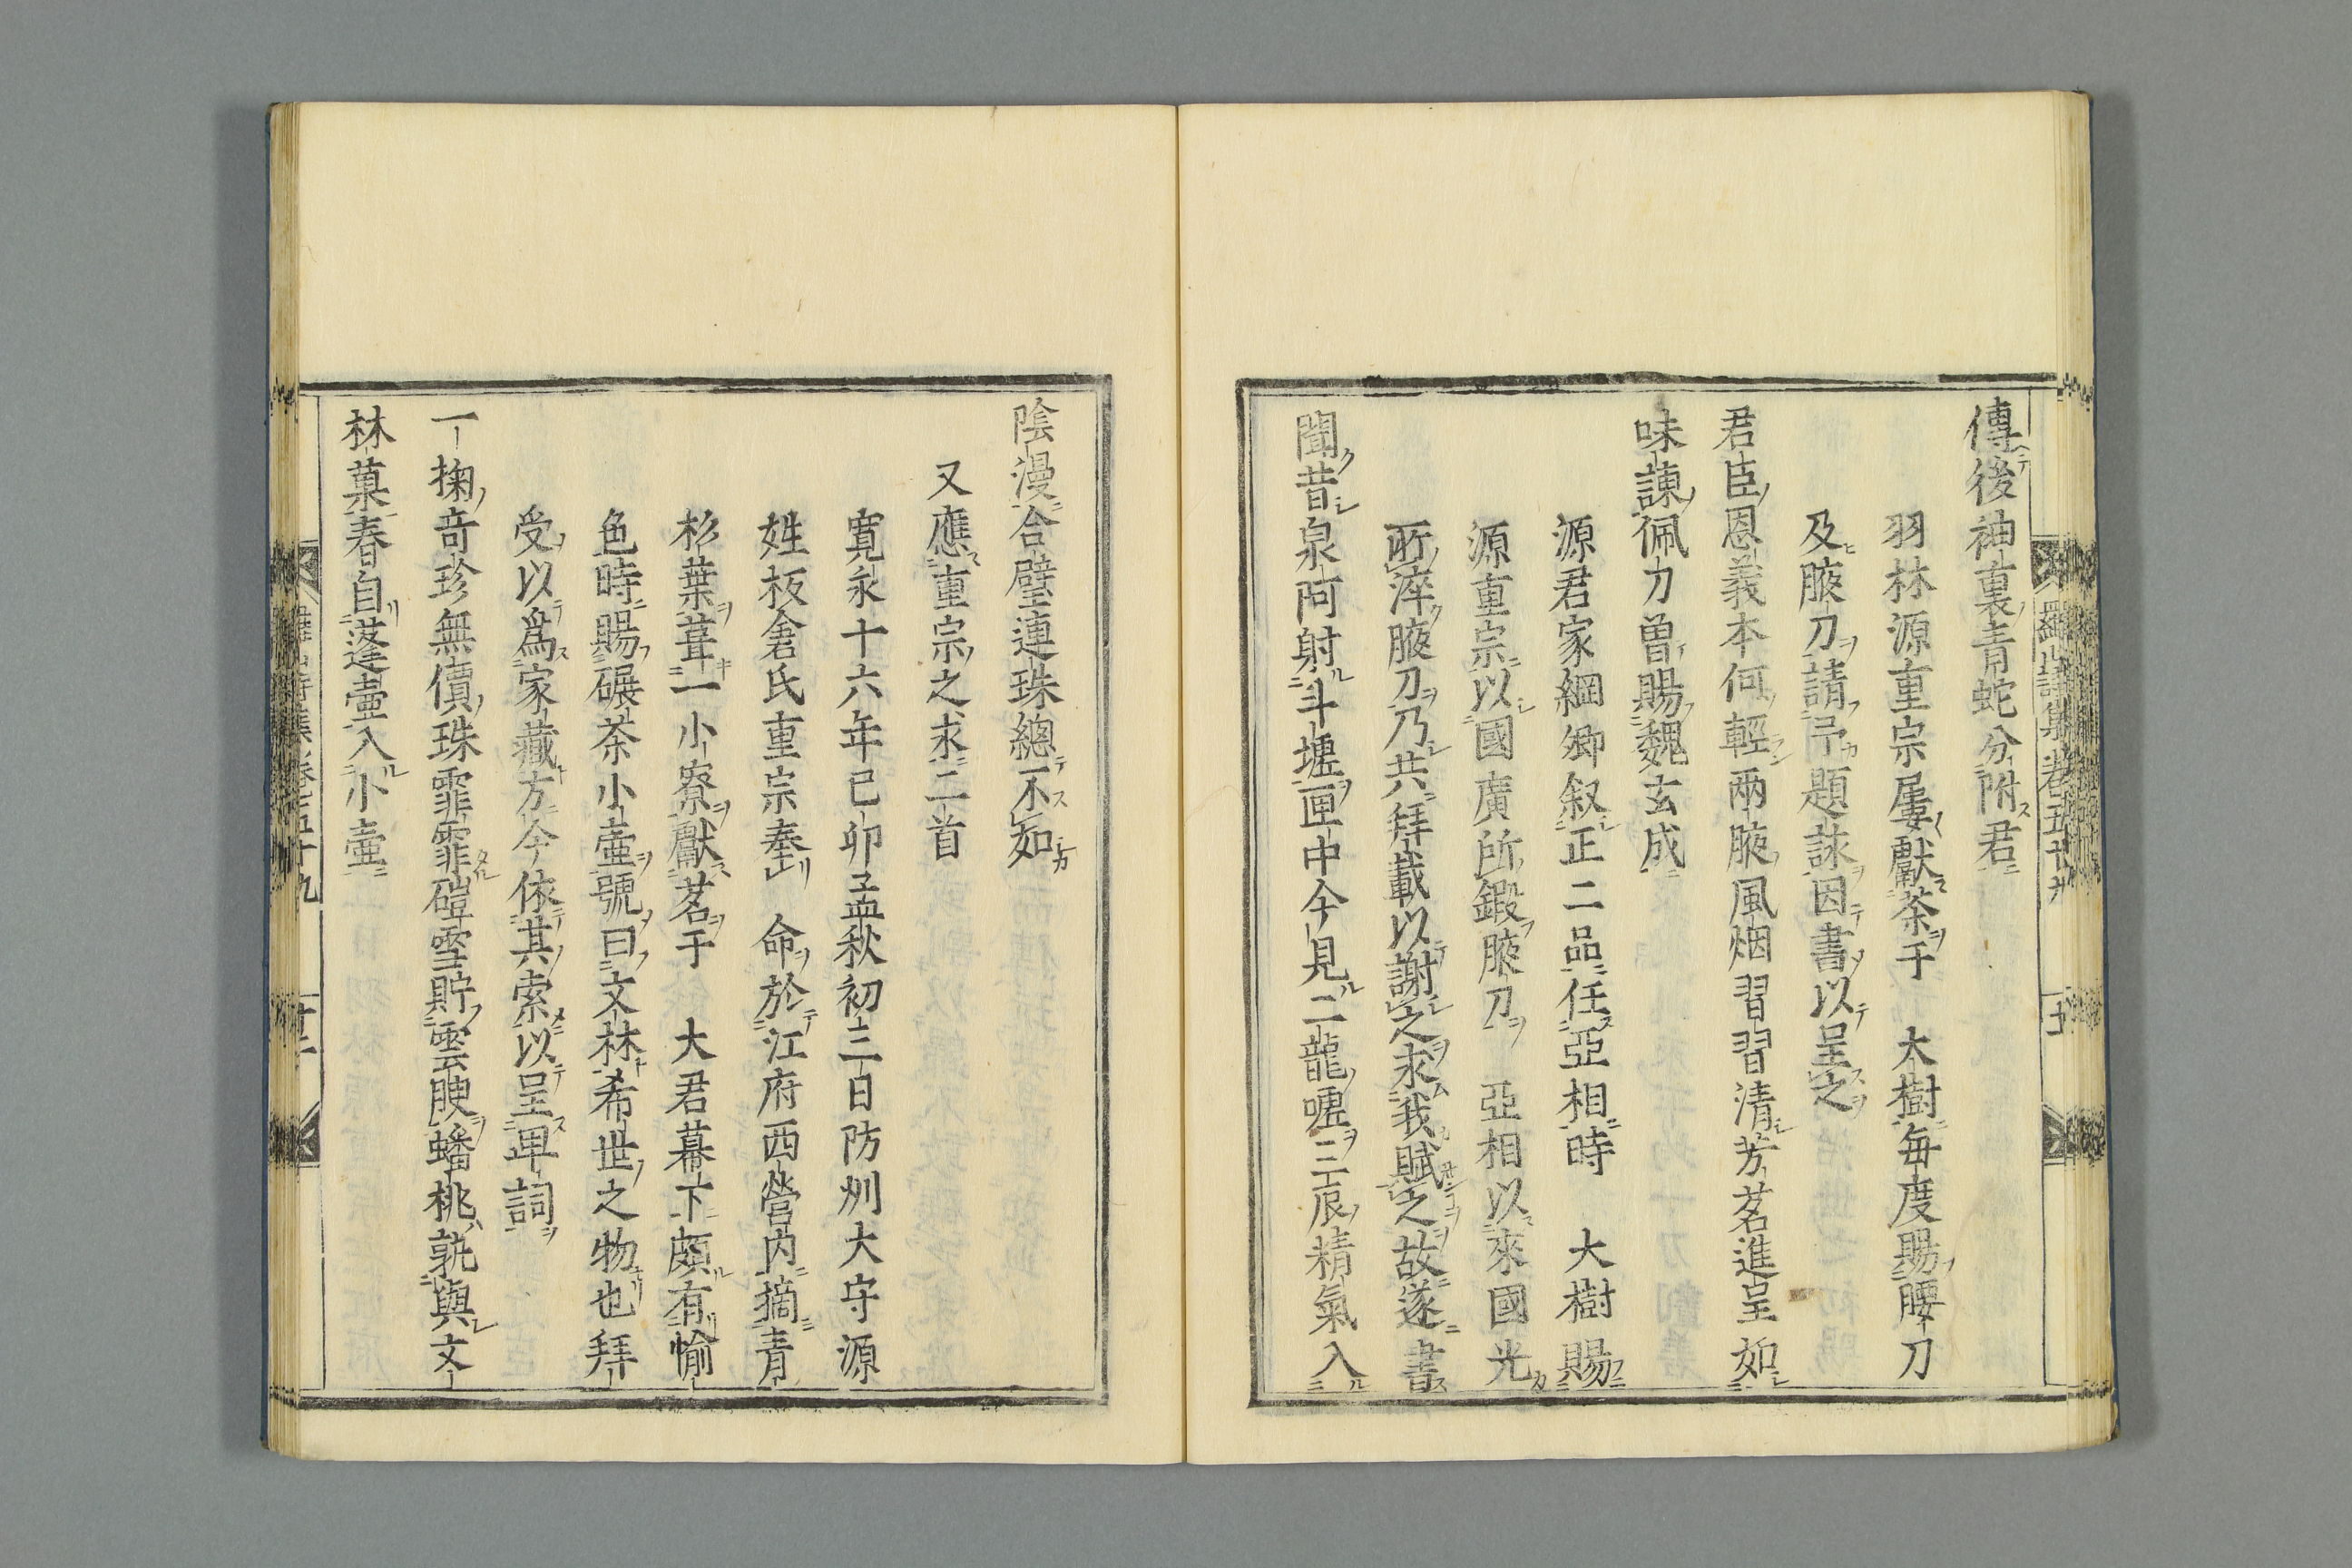 傳後袖裏青蛇分附君
羽林源重宗屢獻茶于　大樹毎度賜腰刀
及腋刀請予題詠因書以呈之
君臣恩義本何輕兩腋風烟習習清芳茗進呈如
味諫佩刀曽賜魏玄成
源君家綱卿叙正二品任亞相時　大樹賜
源重宗以國廣所鍛腋刀　亞相以來國光
所淬腋刀乃共拜載以謝之求我賦之故遂書
聞昔泉阿射斗壚匣中今見二龍嚧三辰精氣入
陰漫合璧連珠總不如
又應重宗之求二首
寛永十六年己卯孟秋初三日防州大守源
姓板倉氏重宗奉　命於江府西營内摘青
杉葉葺一小寮獻茗于　大君幕下頗有愉
色時賜碾茶小壷號曰文林希世之物也拜
受以爲家藏方今依其索以呈卑詞
一掬奇珍無價珠霏霏磑雪貯雲腴蟠桃孰與文
林菓春自蓬壷入小壷